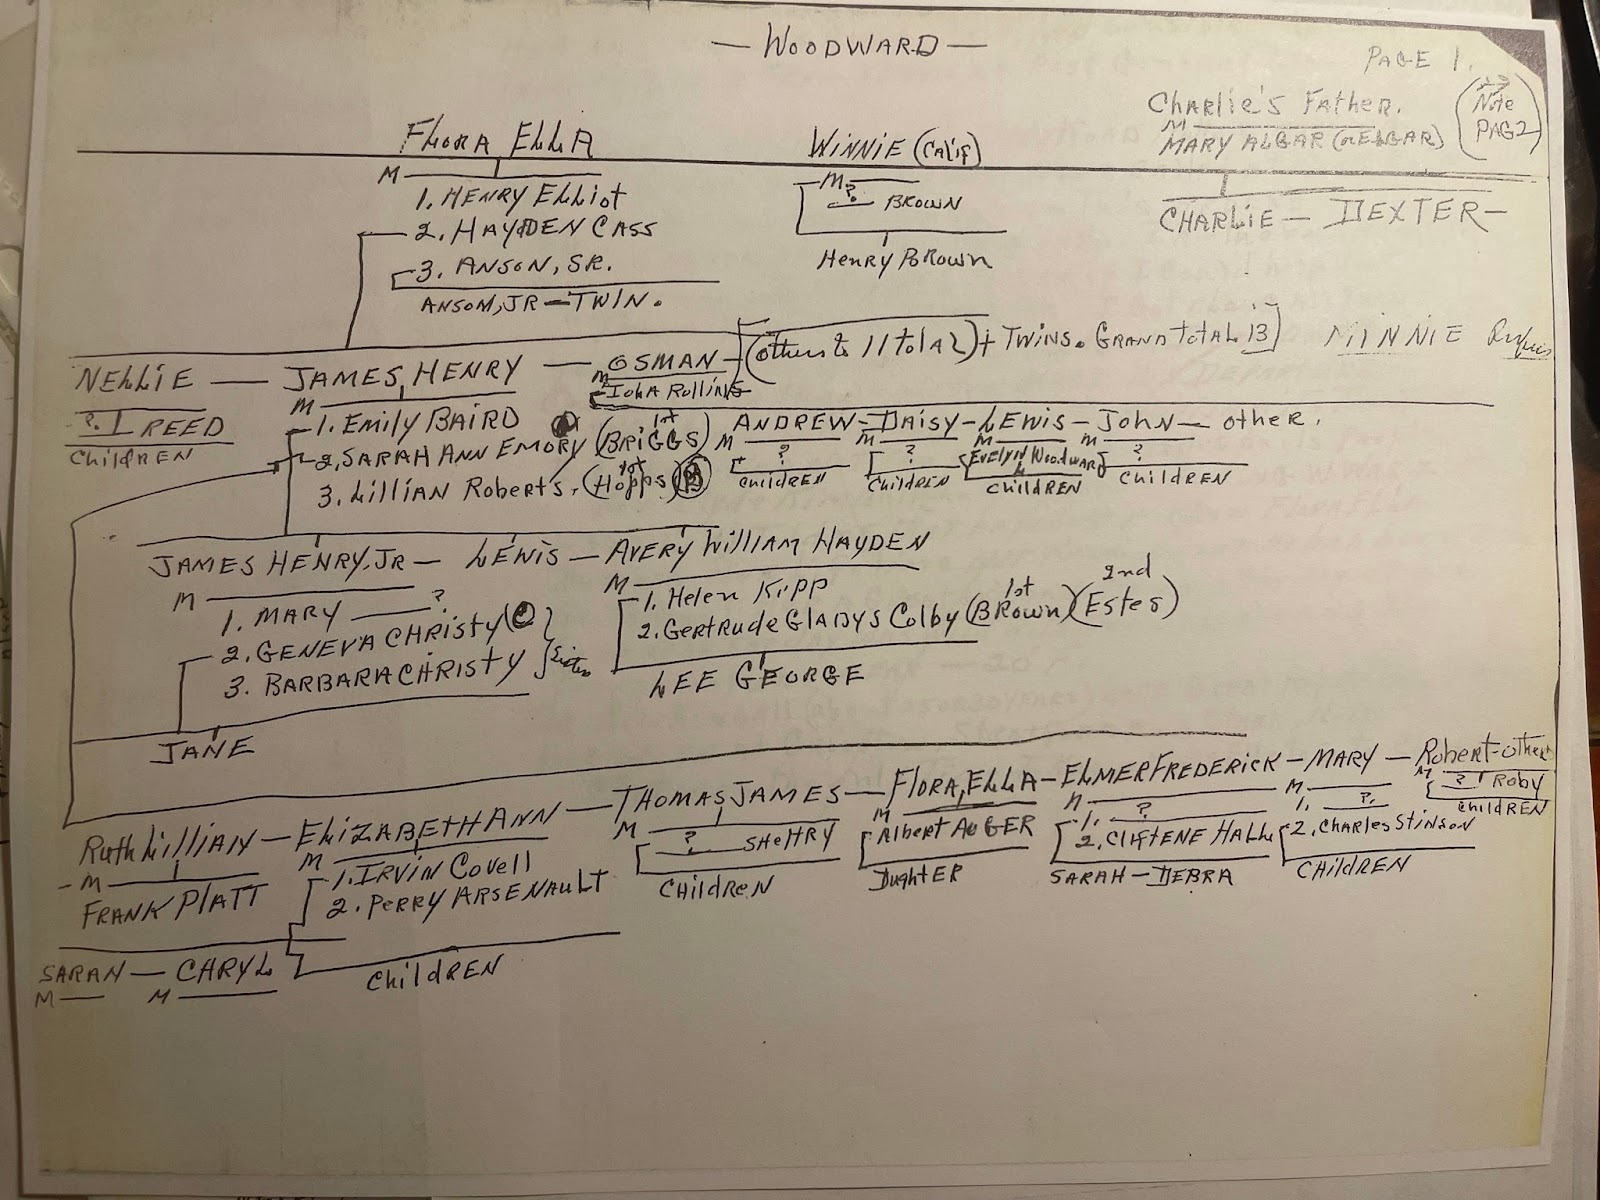 — WOODWARD —
PAGE 1.
Charlie's Father.
M
MARY ALGAR (or ELGAR)
Note
PAG 2
FLORA ELLA
WINNIE (Calif)
M
1. HENRY ELLIOT
2. HAYDEN CASS
3. ANSON, SR.
ANSOM, JR — TWIN.
M
? BROWN
Henry BROWN
CHARLIE — DEXTER —
NELLIE — JAMES, HENRY — OSMAN — (others to 11 total 2) + TWINS. GRAND total 13] MINNIE
? REED
ChildREN
M
1. EMILY BAIRD
2. SARAH ANN EMORY (BRIGGS) 1st
3. LILLIAN Roberts. (Hopps) 1st
M
IOhA Rollins
ANDREW — DAISY — LEWIS — JOHN — other.
M ? ChildREN
M ? ChildREN
M EVELYN WoodwaRd ChildREN
M ? ChildREN
JAMES HENRY, JR — LEWIS — AVERY WILLIAM HAYDEN
M
1. MARY ____ ?
2. GENEVA CHRISTY
3. BARBARA CHRISTY
M
1. Helen KIPP
2. GERTRUDE GLADYS Colby (BROWN) 1st (Estes) 2nd
LEE GEORGE
JANE
Ruth LILLIAN — ELIZABETH ANN — THOMAS JAMES — FLORA, ELLA — ELMER FREDERICK — MARY — Robert — other
M
FRANK PLATT
M
1. IRVIN Covell
2. PERRY ARSENAULT
M
? SHEHRY
ChildreN
M
Albert AUGER
DAughtER
M
1. ?
2. CLIFTENE HALL
SARAH — DEBRA
M
1. ?
2. ChARLES STINSON
ChildREN
M
? ROBY
ChildREN
SARAH — CARYL
M — M —
ChildREN